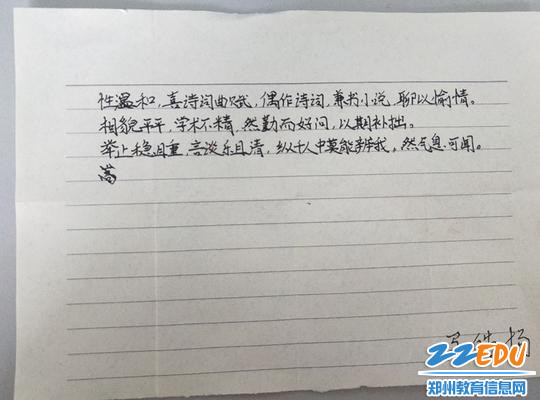 性温和，喜诗词曲赋，偶作诗词，兼书小说，聊以愉情。
相貌平平，学术不精，然勤而好问，以期补拙。
举止稳且重，言谈乐且清，纵千人中莫能辨我，然气息可闻。
蒿
ZZEDU
郑州教育信息网